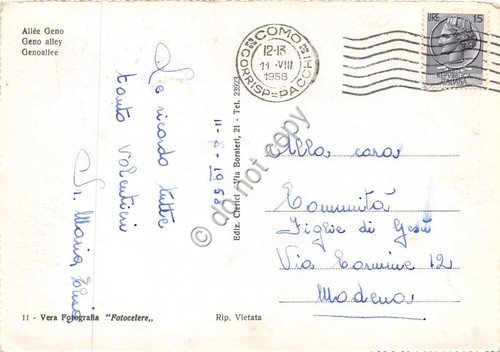 Allée Geno
Geno alley
Genoallee
COMO
12-13
11 · VIII
1958
CORRISP = PACCHI
LIRE 15
REPUBBLICA
Le ricordo tutte
tanto volentieri
S. Maria
11-8-1958
Ediz. Clerici - Via Borsieri, 21 - Tel. 23923
Alla cara
Comunità
Figlie di Gesù
Via Carmine 12
Modena
11 - Vera Fotografia "Fotocelere„
Rip. Vietata
do not copy